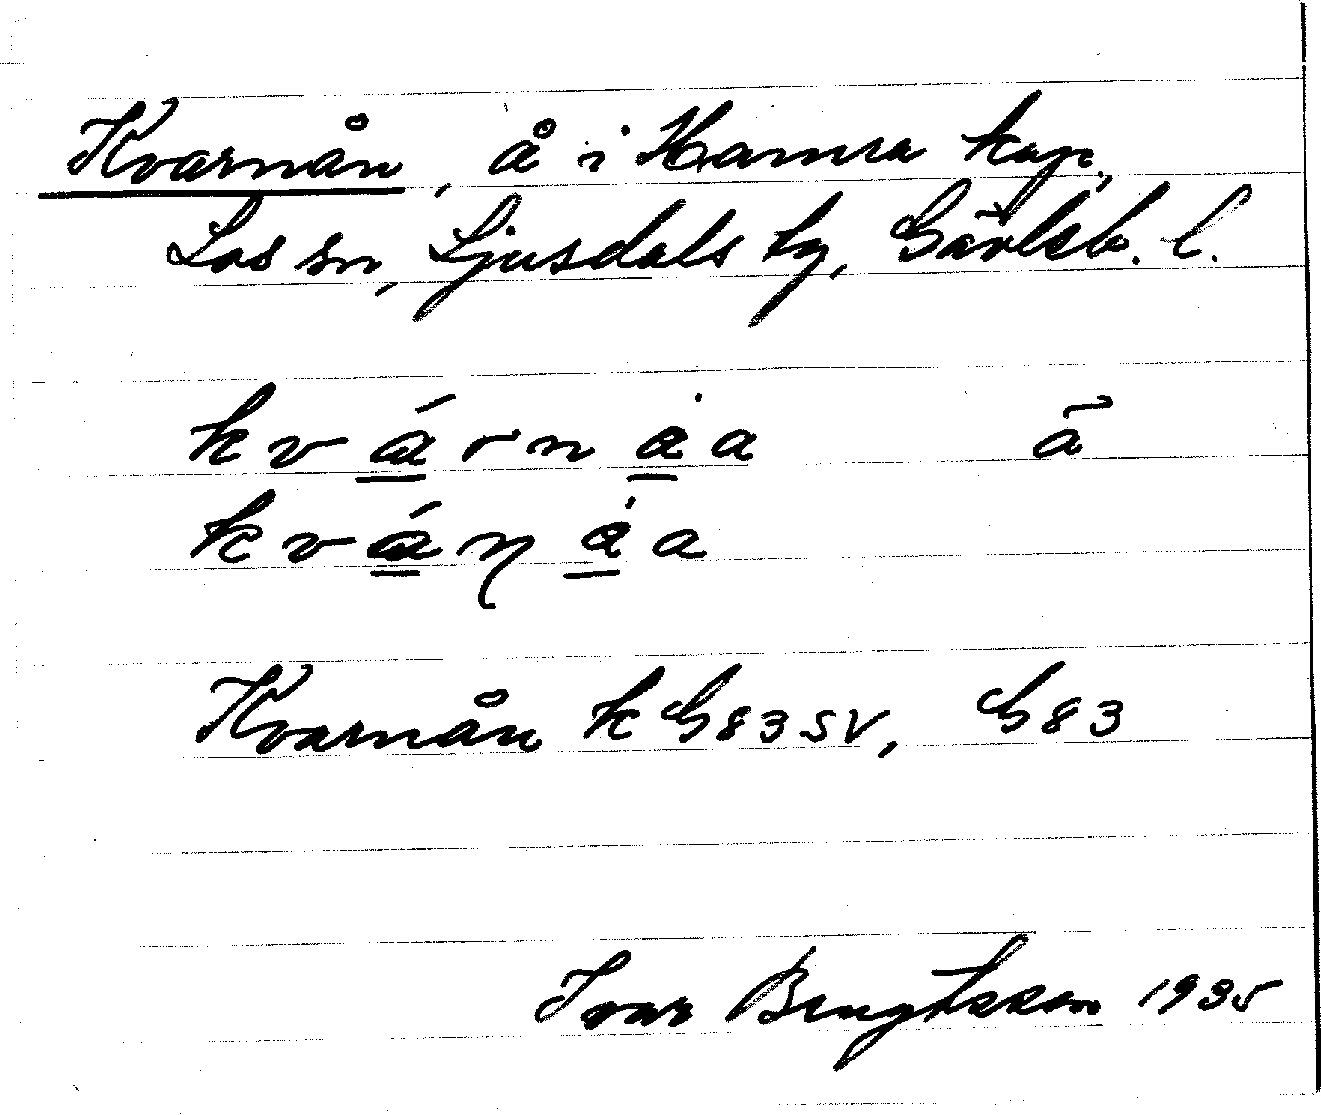 Kvarnån, å i Hamra kap,
Los sn, Ljusdals tg, Gävleb. l.
kvárnȧa å̄
kváṇȧa
Kvarnån k G83SV, G83
Ivar Bengtsson 1935